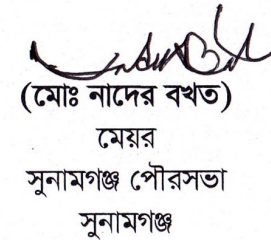 (মোঃ নাদের বখত)
মেয়র
সুনামগঞ্জ পৌরসভা
সুনামগঞ্জ